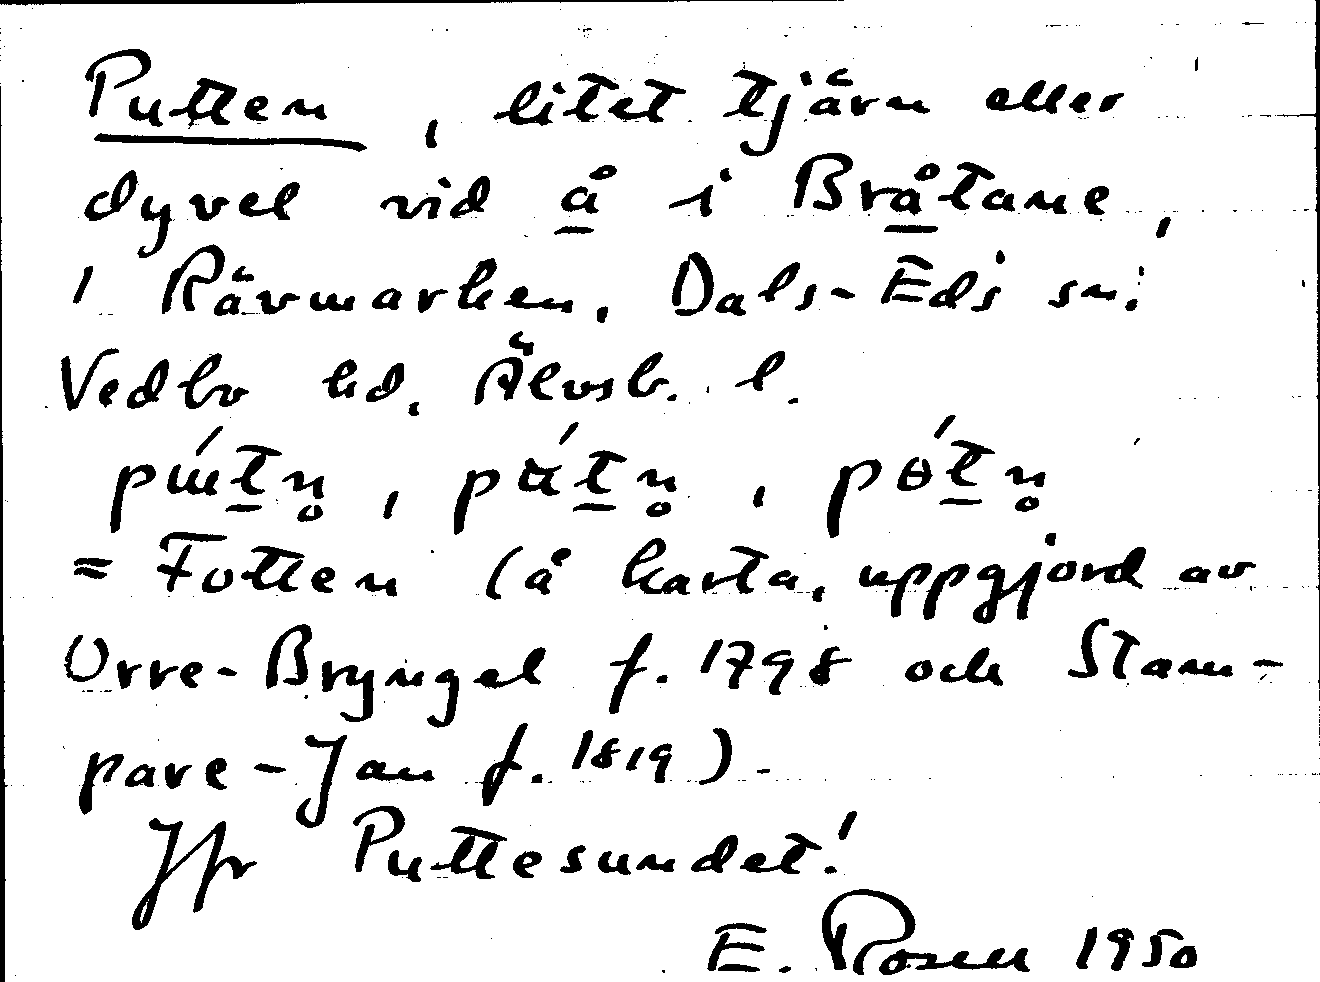 Putten, litet tjärn eller
dyvel vid å i Bråtane,
i Rävmarken, Dals-Eds sn.
Vedbo hd, Älvsb. l.
= Fotten (å karta, uppgjord av
Orre-Bryngel f. 1798 och Stam-
pare-Jan f. 1819).
Jfr Puttesundet!
E. Rosen 1950